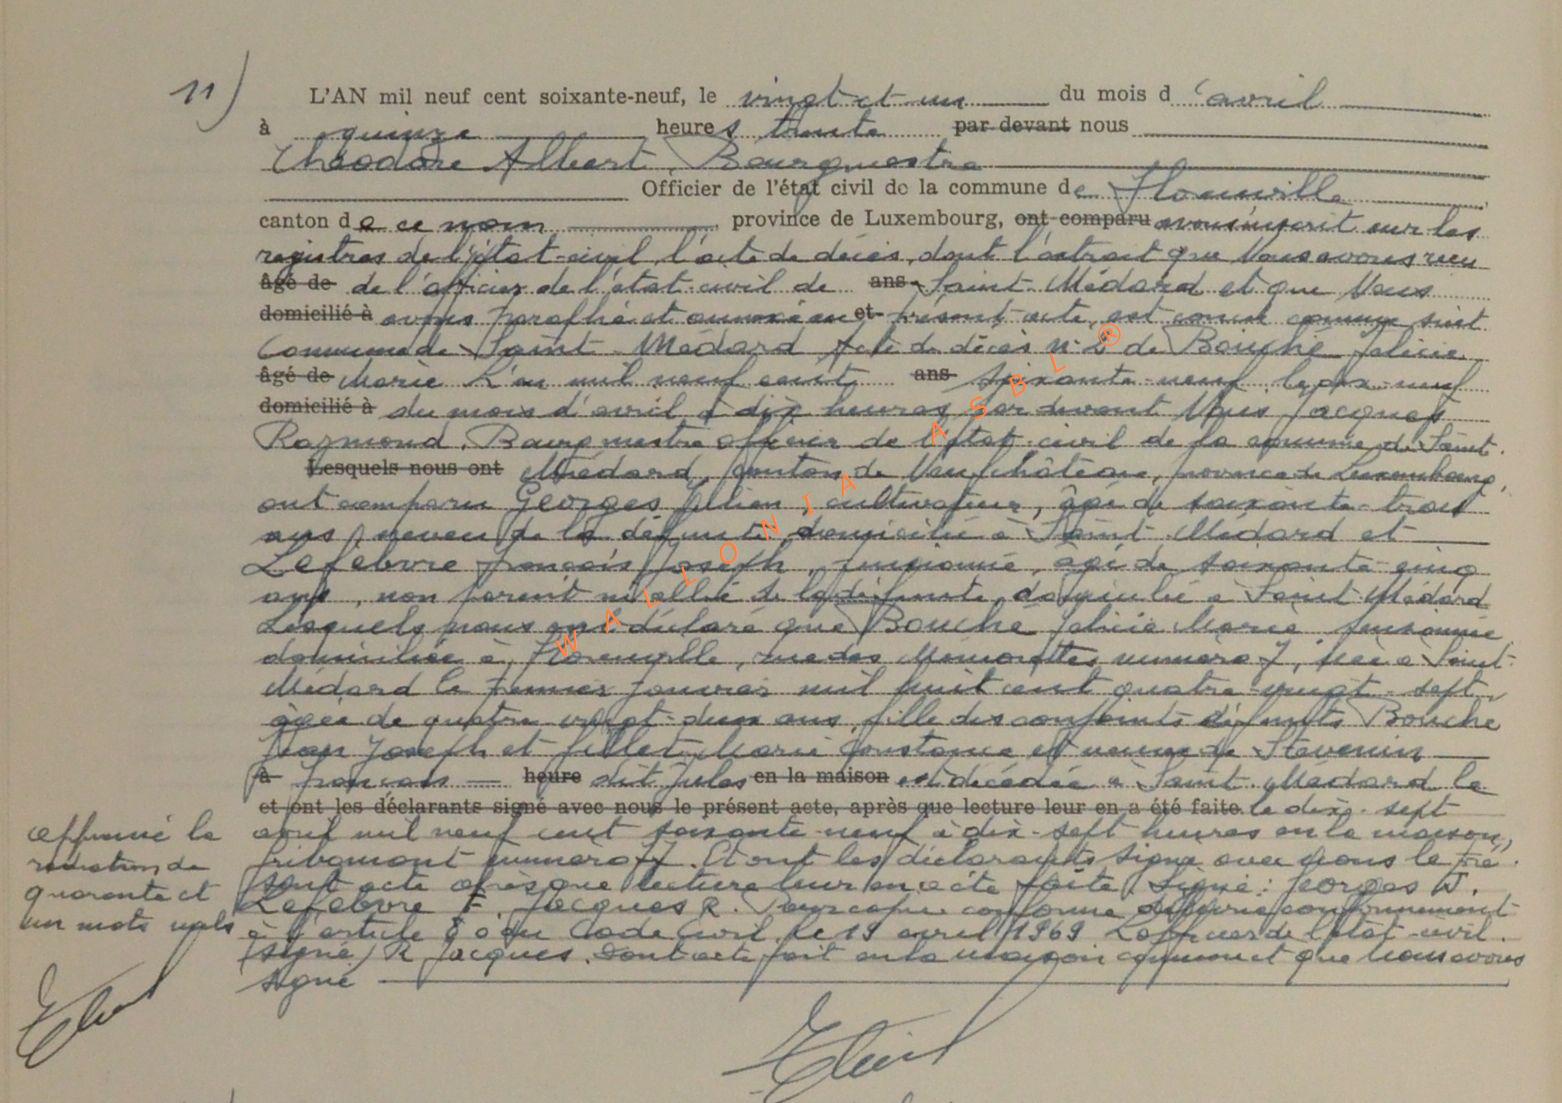 11)
L'AN mil neuf cent soixante-neuf, le vingt et un du mois d avril
à quinze heure s trente par devant nous
Théodore Albert, Bourgmestre
Officier de l'état civil de la commune de Florenville
canton de ce nom, province de Luxembourg, ont comparu avons inscrit sur les
registres de l'état-civil, l'acte de décès, dont l'extrait que Nous avons reçu
âgé de de l'officier de l'état-civil de ans Saint-Médard et que Nous
domicilié à avons paraphé et annexé au et présent acte, est conçu comme suit
Commune de Saint-Médard Acte de décès n° 2 de Bouché Félicie
âgé de Marie L'an mil neuf cent ans soixante-neuf le dix-neuf
domicilié à du mois d'avril à dix heures, par devant Nous Jacques
Raymond, Bourgmestre officier de l'état-civil de la commune de Saint-
Lesquels nous ont Médard, canton de Neufchâteau, province de Luxembourg,
ont comparu Georges, cultivateur, âgé de soixante-trois
ans, neveu de la défunte, domicilié à Saint-Médard et
Lefèbvre François Joseph, pensionné, âgé de soixante-cinq
ans, non parent ni allié de la défunte, domicilié à Saint-Médard
Lesquels nous ont déclaré que Bouché Félicie Marie, pensionnée
domiciliée à Florenville, rue des numéro 7, née à Saint-
Médard le premier janvier mil huit cent quatre-vingt-sept,
âgée de quatre-vingt-deux ans, fille des conjoints défunts Bouché
Jean Joseph et Fillet Marie Constance et veuve de Stevenin
à François heure dit Jules en la maison est décédée à Saint-Médard le
et ont les déclarants signé avec nous le présent acte, après que lecture leur en a été faite. le dix-sept
avril mil neuf cent soixante-neuf à dix-sept heures en la maison,
Fribomont numéro 7. Et ont les déclarants signé avec nous le pré-
sent acte après que lecture leur en a été faite. Signé: Georges J.
Lefèbvre F. Jacques R. Pour copie conforme délivrée conformément
à l'article 80 du Code Civil, le 19 avril 1969 L'officier de l'état-civil.
(signé) R Jacques. Dont acte fait en la maison communale et que Nous avons
signé
approuvé la
radiation de
quarante et
un mots nuls